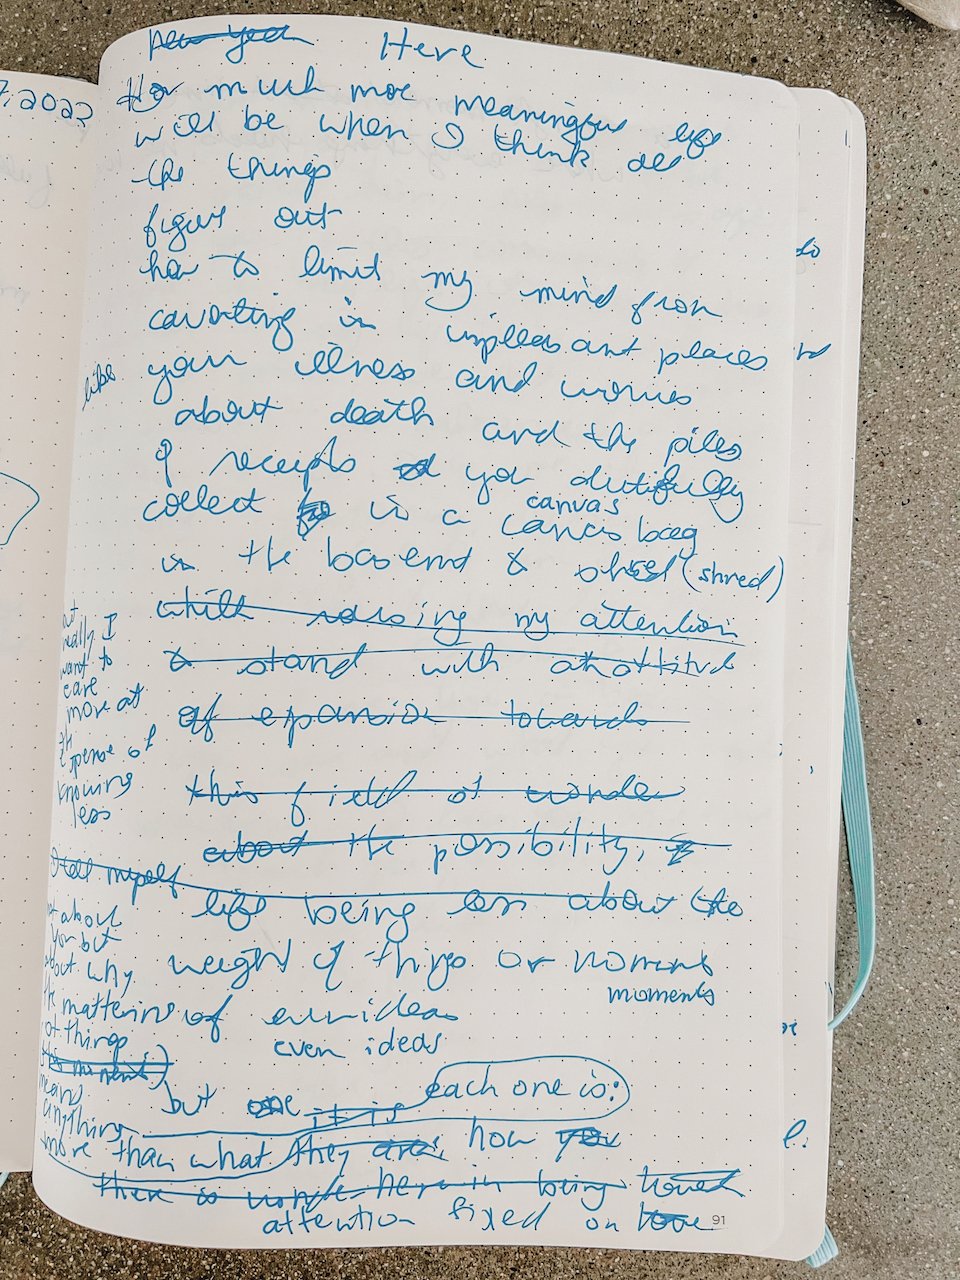 7, 2023
new year Here
How much more meaningful life
will be when I think all
the things
figure out
how to limit my mind from
cavorting in unpleasant places
like your illness and worries
about death and the piles
of receipts you dutifully
collect in a canvas bag
canvas
in the basemt & shred (shred)
while raising my attention
to stand with an attitud
of expansion towards
this field of wonder
about the possibility,
life being less about the
weight of things or moments
moments
of even ideas
even ideas
but one it is each one is:
how you
there is wonder here in being loved
attention fixed on love
really I
want to
care
more at
th
expense of
knowing
less
I tell myself
about
you but
about why
the mattering
of things
(this moment)
means
anything
more than what they are
91
do